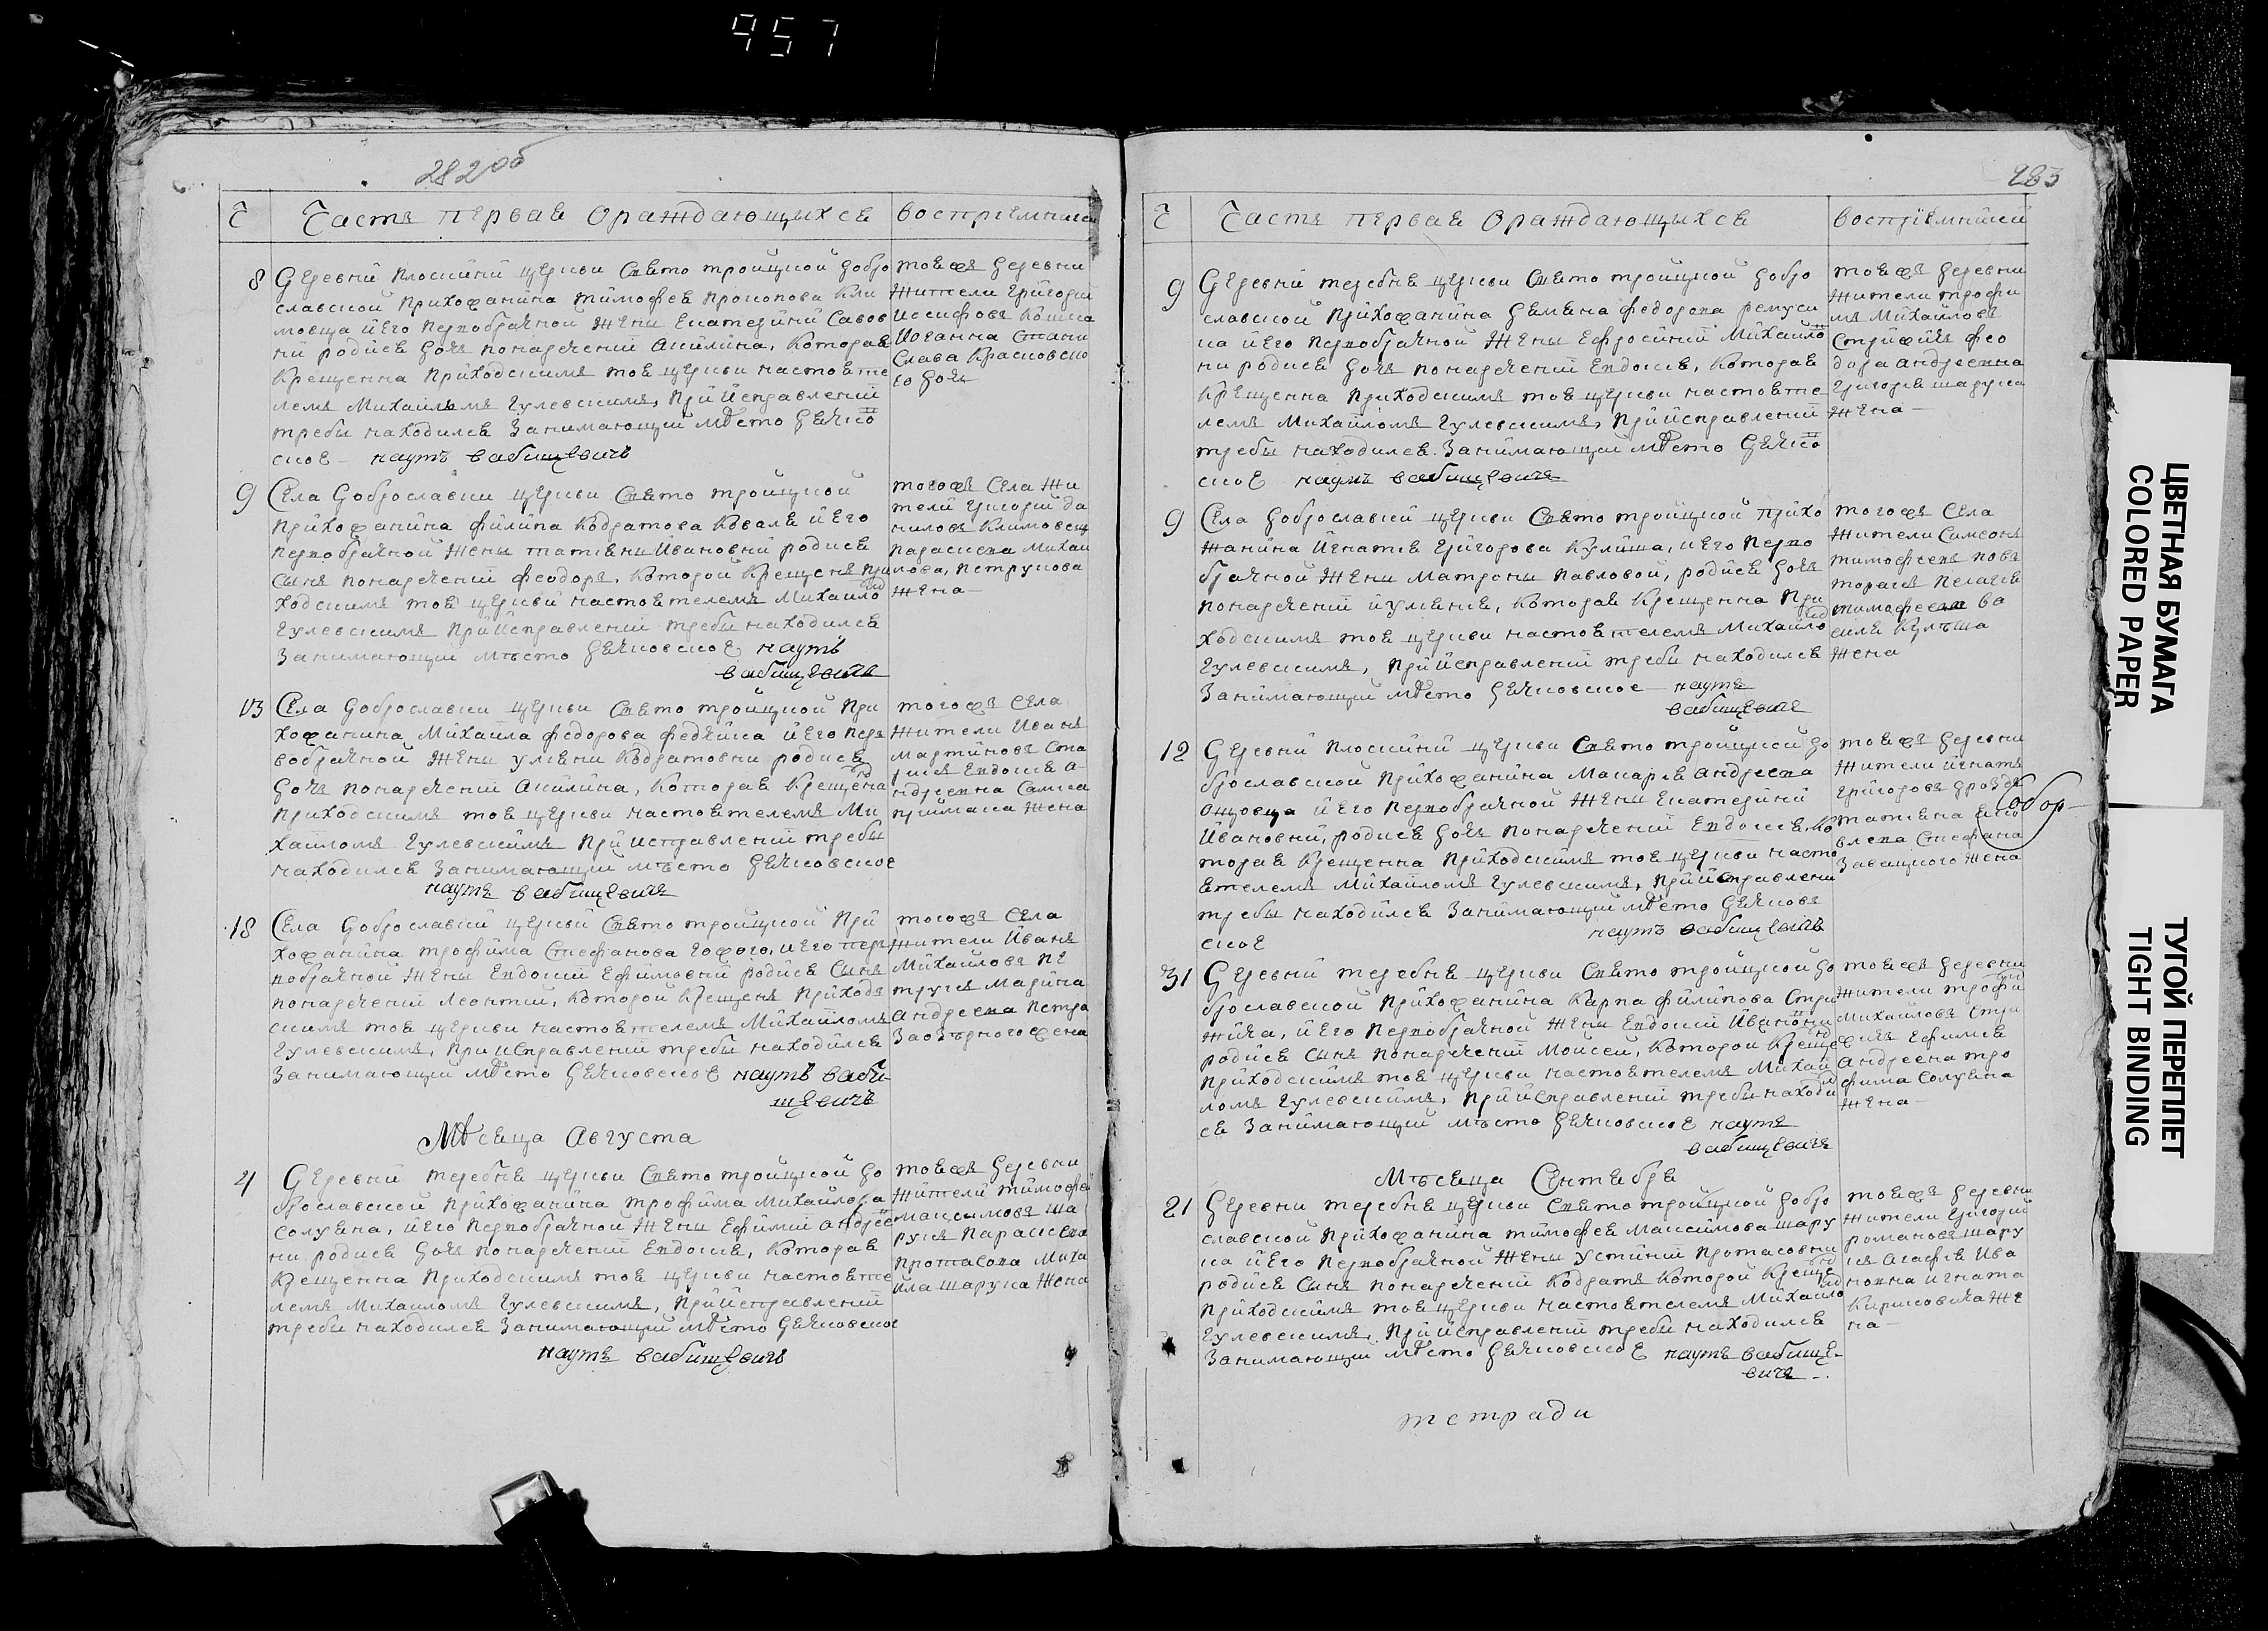 957
282об
Ч
Часть первая о раждающыхся
восприемники
8
Деревни Плоскини церкви Свято троицкой добро
славской прихожанина тимофея прокопова кли
мовца и его первобрачной жены Екатерини Савов
ни родися дочь понаречении Акилина, которая
крещенна приходскимъ тоя церкви настояте
лемъ Михаиломъ Гулевскимъ, При исправлении
требы находился Занимающий место дьячко
ское наумъ вабищевичъ
тоя жъ деревни
жители Григорий
иосифовъ
Иоганна Стани
слава Красновско
го дочь
9
Села Доброславки церкви Свято троицкой
прихожанина филипа Кодратова Коваля и его
первобрачной жены татияни Ивановни родися
сынъ понаречении феодоръ, которой крещенъ при
ходскимъ тоя церкви настоятелемъ Михаило
Гулевскимъ при исправлении требы находился
Занимающии мъсто дьячковское наумъ
вабищевичъ
тогожъ села жи
тели Григорий да
ниловъ Климовец
параскева Михаи
лова, петрукова
жена
13
Села Доброславки церкви Свято троицкой при
хожанина Михаила федорова федчика и его пер
вобрачной жени улияни Кодратовни родися
дочь понаречении Акилина, которая крещена
приходскимъ тоя церкви настоятелемъ Ми
хаиломъ Гулевскимъ При исправлении требы
находился Занимающий мъсто дьячковское
наумъ вабищевичъ
тогожъ села
жители Иванъ
мартиновъ
Евдокия а
ндреевна
жена
18
Села Доброславки церкви Свято троицкой При
хожанина трофима Стефанова и его перъ
вобрачной жены Евдокии Ефимовни родися сынъ
понаречении Леонтии, которой крещенъ приход
скимъ тоя церкви настоятелемъ Михаиломъ
Гулевскимъ, при исправлении требы находился
Занимающий место дьячковское наумъ ваби
щевичъ
тогожъ села
жители Иванъ
Михаиловъ пе
трукъ Марина
андреева петра
Заозърного жена
Мѣсяца Августа
4
Деревни теребня церкви Свято троицкой до
брославской прихожанина трофима Михаилова
солуяна, и его первобрачной жени Ефимии андрее
ни родися дочь понаречении Евдокия, которая
крещенна приходскимъ тоя церкви настояте
лемъ Михаиломъ Гулевскимъ, при исправлении
требы находился Занимающий место дьячковское
наумъ вабищевичъ
тоя жъ деревни
жители тимофей
максимовъ ша
рукъ параскева
протасова миха
ила шарука жена
283
Ч
Часть первая о раждающыхся
восприемники
9
Деревни теребня церкви Свято троицкой добро
славской прихожанина Демяна федорова ремуси
ка и его первобрачной жены Ефросинии Михаило
ни родися дочь понаречении Евдокия, которая
крещенна приходскимъ тоя церкви настояте
лемъ Михаиломъ Гулевскимъ, При исправлении
требы находился Занимающий место дьячко
ское наумъ вабищевичъ
тоя жъ деревни
жители трофи
мъ Михаиловъ
Стрижикъ фео
дора андреевна
григория шарука
жена
9
Села Доброславки церкви Свято троицкой прихо
жанина Игнатия григорова Кулиша, и его перво
брачной жени Матрони павловой, родися дочь
понаречении иулияния, которая крещенна при
ходскимъ тоя церкви настоятелемъ Михаило
Гулевскимъ, при исправлении требы находился
Занимающий место дьячковское наумъ
вабищевичъ
тогожъ села
жители Симеонъ
тимофеевъ
пелагия
тимофеева ва
силя Кулъша
жена
12
Деревни Плоскини церкви Свято троицкой до
брославской прихожанина Макария андреева
ощовца и его первобрачной жени Екатерини
Ивановни, родися дочь понаречении Евдокия, ко
торая крещенна приходскимъ тоя церкви насто
ятелемъ Михаиломъ Гулевскимъ, при исправлени
требы находился Занимающий место дьячков
ское наумъ вабищевичъ
тоя жъ деревни
жители игнатъ
григоровъ дроздъ
татияна яко
влева Стефана
Завацкого жена
31
Деревни теребня церкви Свято троицкой до
брославской прихожанина Карпа филипова Стри
жика, и его первобрачной жени Евдокии Ивановни
родися сынъ понаречении Моисей, которои креще
приходскимъ тоя церкви настоятелемъ Михаи
ломъ Гулевскимъ, при исправлении требы находил
ся Занимающий мъсто дьячковское наумъ
вабищевичъ
тоя жъ деревни
жители трофи
михаиловъ Стри
жикъ Ефимия
Андреевна тро
фима Солуяна
жена
Мѣсяца Сентября
21
Деревни теребня церкви Свято троицкой добро
славской прихожанина тимофея Максимова шару
ка и его первобрачной жени устинии протасовни
родися сынъ понаречении Кодратъ которой креще
приходскимъ тоя церкви настоятелемъ Михаило
Гулевскимъ, При исправлении требы находился
Занимающий место дьячковское наумъ вабище
вичъ
тоя жъ деревни
жители григорий
романовъ шару
къ агафия Ива
новна игната
Кириковича же
на
тетради
ЦВЕТНАЯ БУМАГА
COLORED PAPER
ТУГОЙ ПЕРЕПЛЕТ
TIGHT BINDING